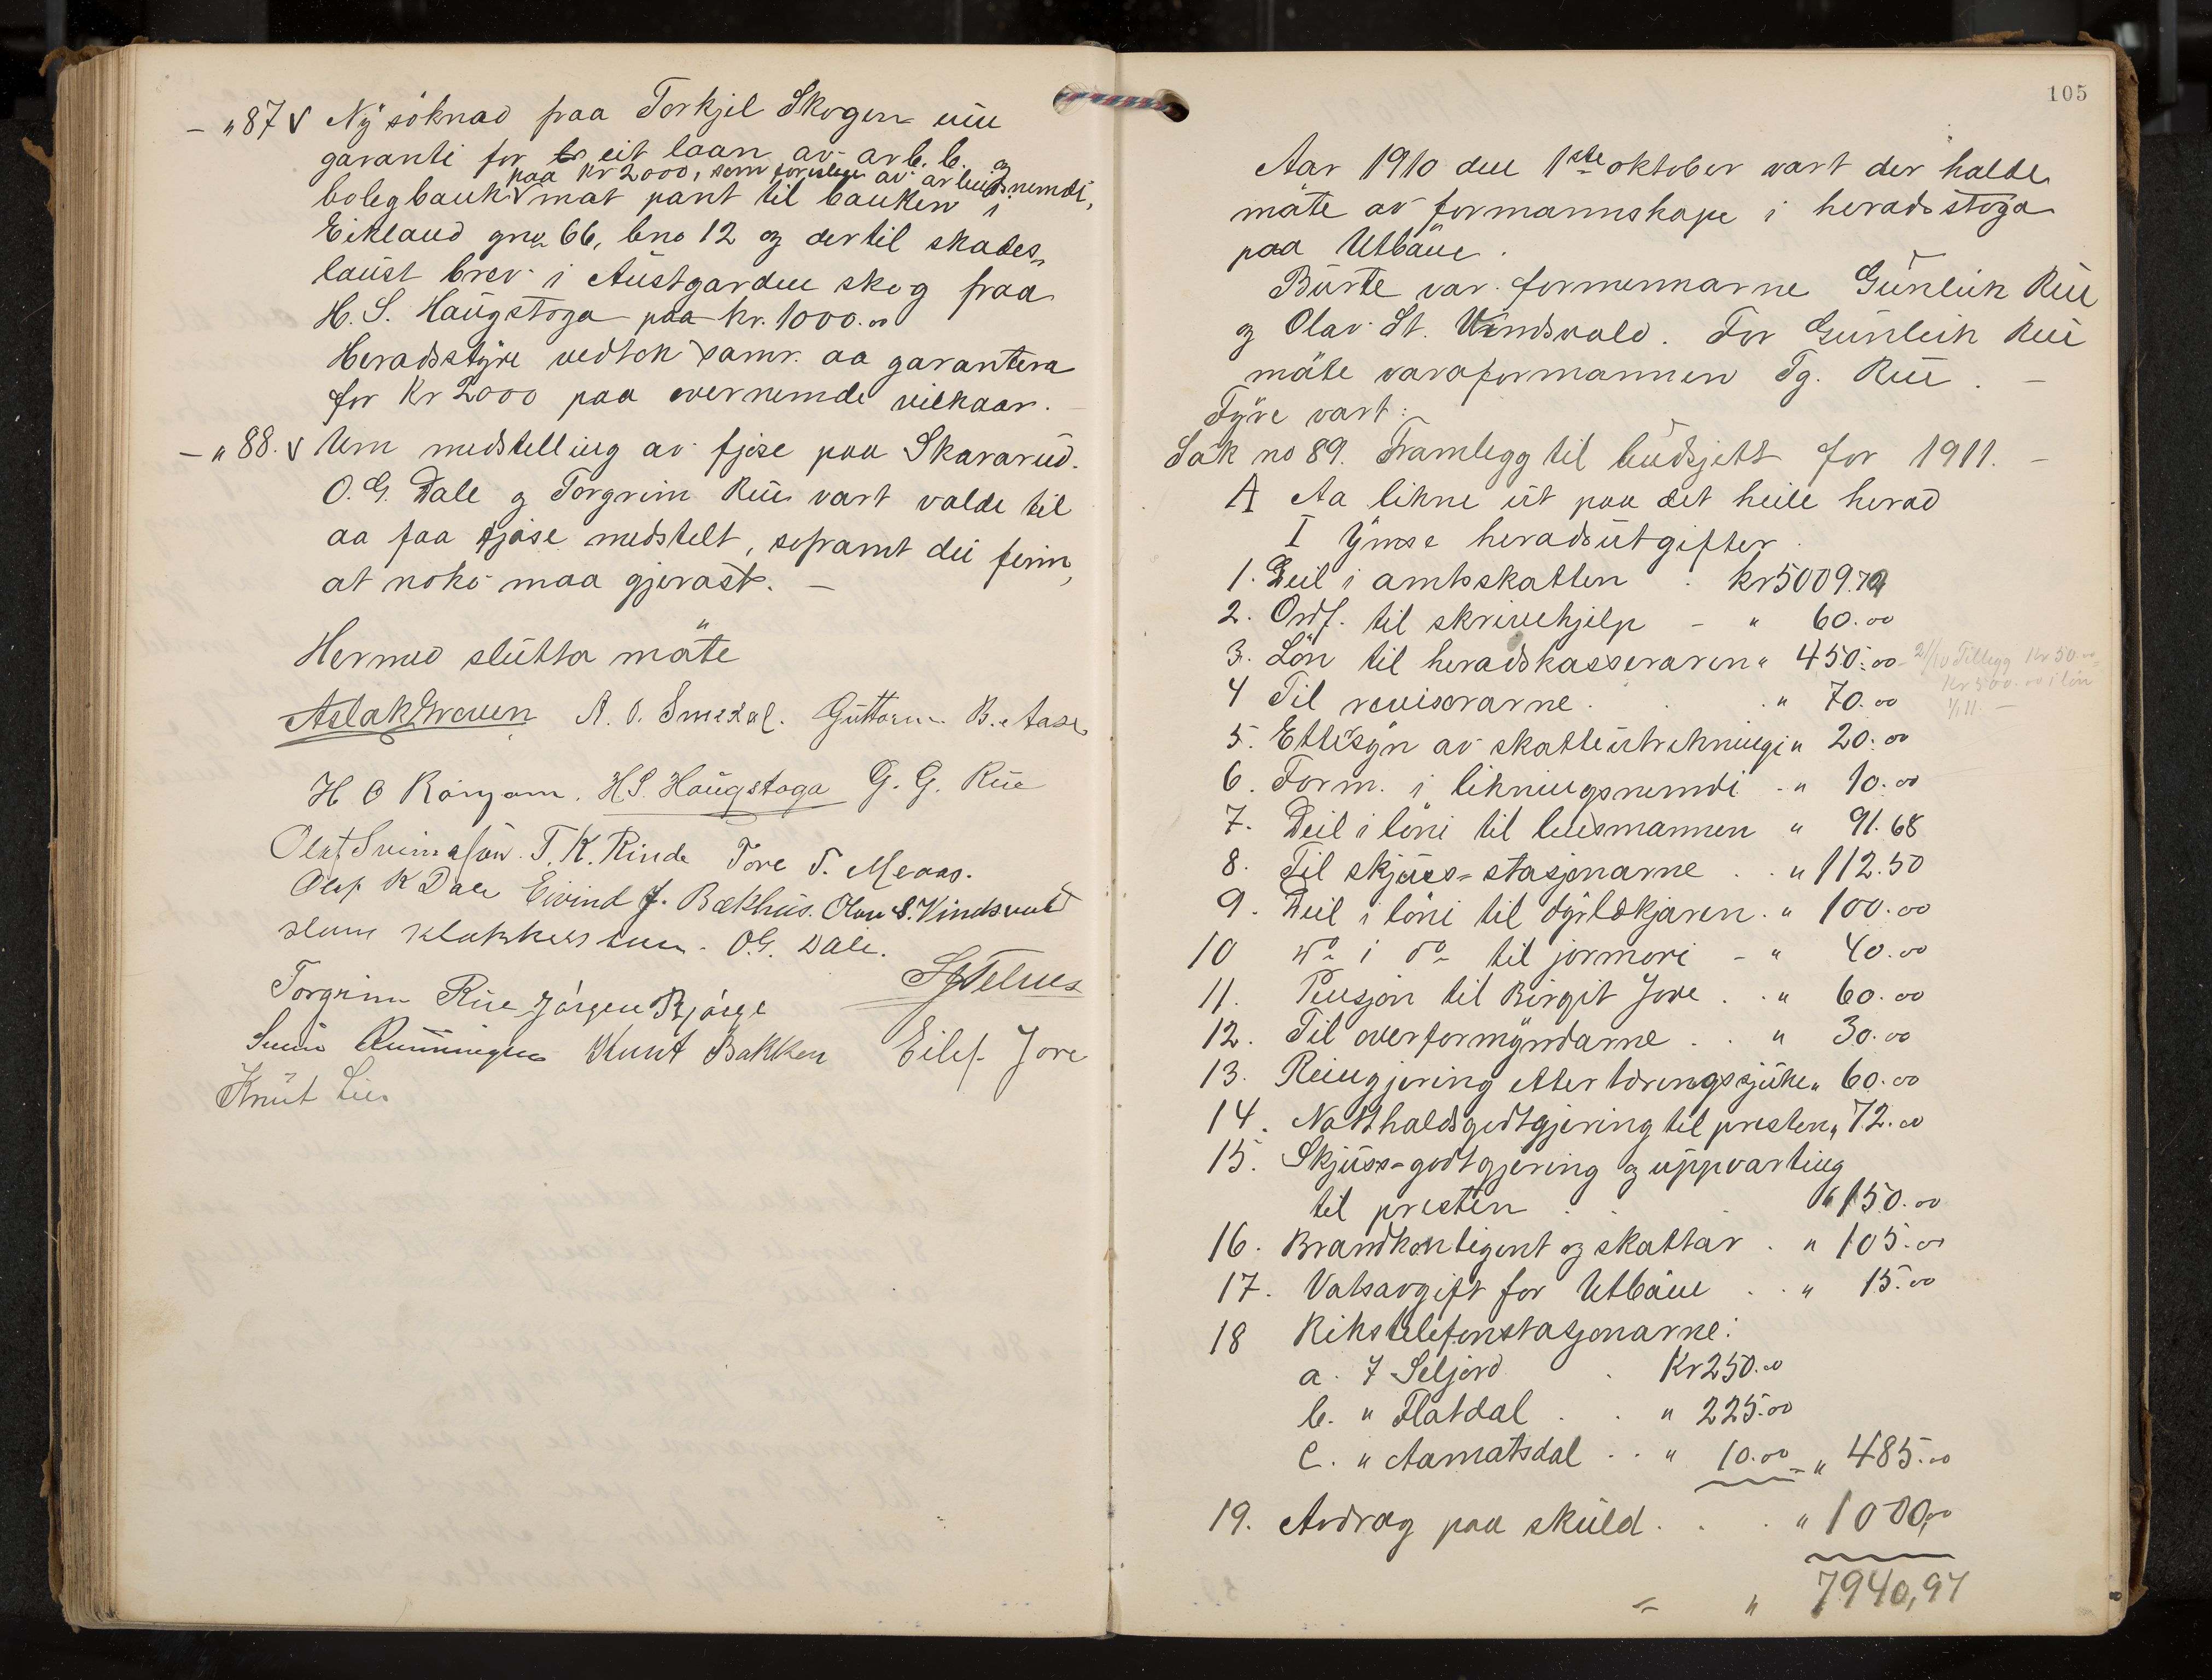 - " 87 V Ny söknad fraa Torkjel Skogen um
garanti for eit laan av arb. b. og
paa kr 2000, som av arbeidsnemdi,
bolegbank V mat pant til banken i
Eikland gno 66, bno 12 og dertil skades-
laust brev i Austgarden skog fraa
H. S. Haugstoga paa kr. 1000.00
Heradsstyre vedtok samr. aa garantera
for Kr 2000 paa overnemde vilkaar.
- " 88. V Um nedstelling av fjose paa Skararud.
O. G. Dale og Torgrim Rue vart valde til
aa faa fjose nedstelt, soframt dei finn,
at noko maa gjerast. -
Hermed slutta möte
Aslak Graven A. O. Smedal. Guttorm B. Aase
H O H.S. Haugstoga G. G. Rue
Olaf T. K. Rinde Tore T.
Olaf K Dale Eivind J. Bækhus. Olav S. Vindsvald
O.G. Dale.
Torgrim Rue Jörgen Björge
Svein Knut Bakken Eilef Jore
Knut Lie
105
Aar 1910 den 1ste oktober vart der halde
möte av formannskape i heradsstoga
paa Utböen.
Burte var formennarne Gunleik Rue
og Olav St. Vindsvald. For Gunleik Rue
mötte varaformannen Tg. Rue. -
Fyre vart:
Sak no 89. Framlegg til budsjett for 1911. -
A Aa likne ut paa det heile herad
I Ymse heradsutgifter.
1. Deil i amtsskatten . kr 5009.79
2. Ordf. til skrivehjelp - " 60.00
3. Lön til heradskasseraren " 450.00 - 21/10 Tillegg Kr 50.00 =
Kr 500.00 i lön
4 Til revisorarne . . " 70.00
1/1 11. -
5. Ettisyn av skatteutrekningi " 20.00
6. Form. i likningsnemdi . " 10.00
7. Deil i löni til lensmannen " 91.68
8. Til skjuss-stasjonarne . . " 112.50
9. Deil i löni til dyrlækjaren . " 100.00
10 Do i do til jormori - " 40.00
11. Pensjon til Birgit Jore . . " 60.00
12. Til overformyndarne . . " 30.00
13. Reingjering etter tæringssjuke " 60.00
14. Natthaldsgodtgjering til presten " 72.00
15. Skjuss-godtgjering og uppvarting
til presten . . . " 150.00
16. Brandkontigent og skattar . " 105.00
17. Vatsavgift for Utböen . . " 15.00
18 Rikstelefonstasjonarne:
a. I Seljord . Kr 250.00
b. " Flatdal . . " 225.00
c. " Aamotsdal . . " 10.00 = " 485.00
19. Avdrag paa skuld . . . " 1000,00
= " 7940,97